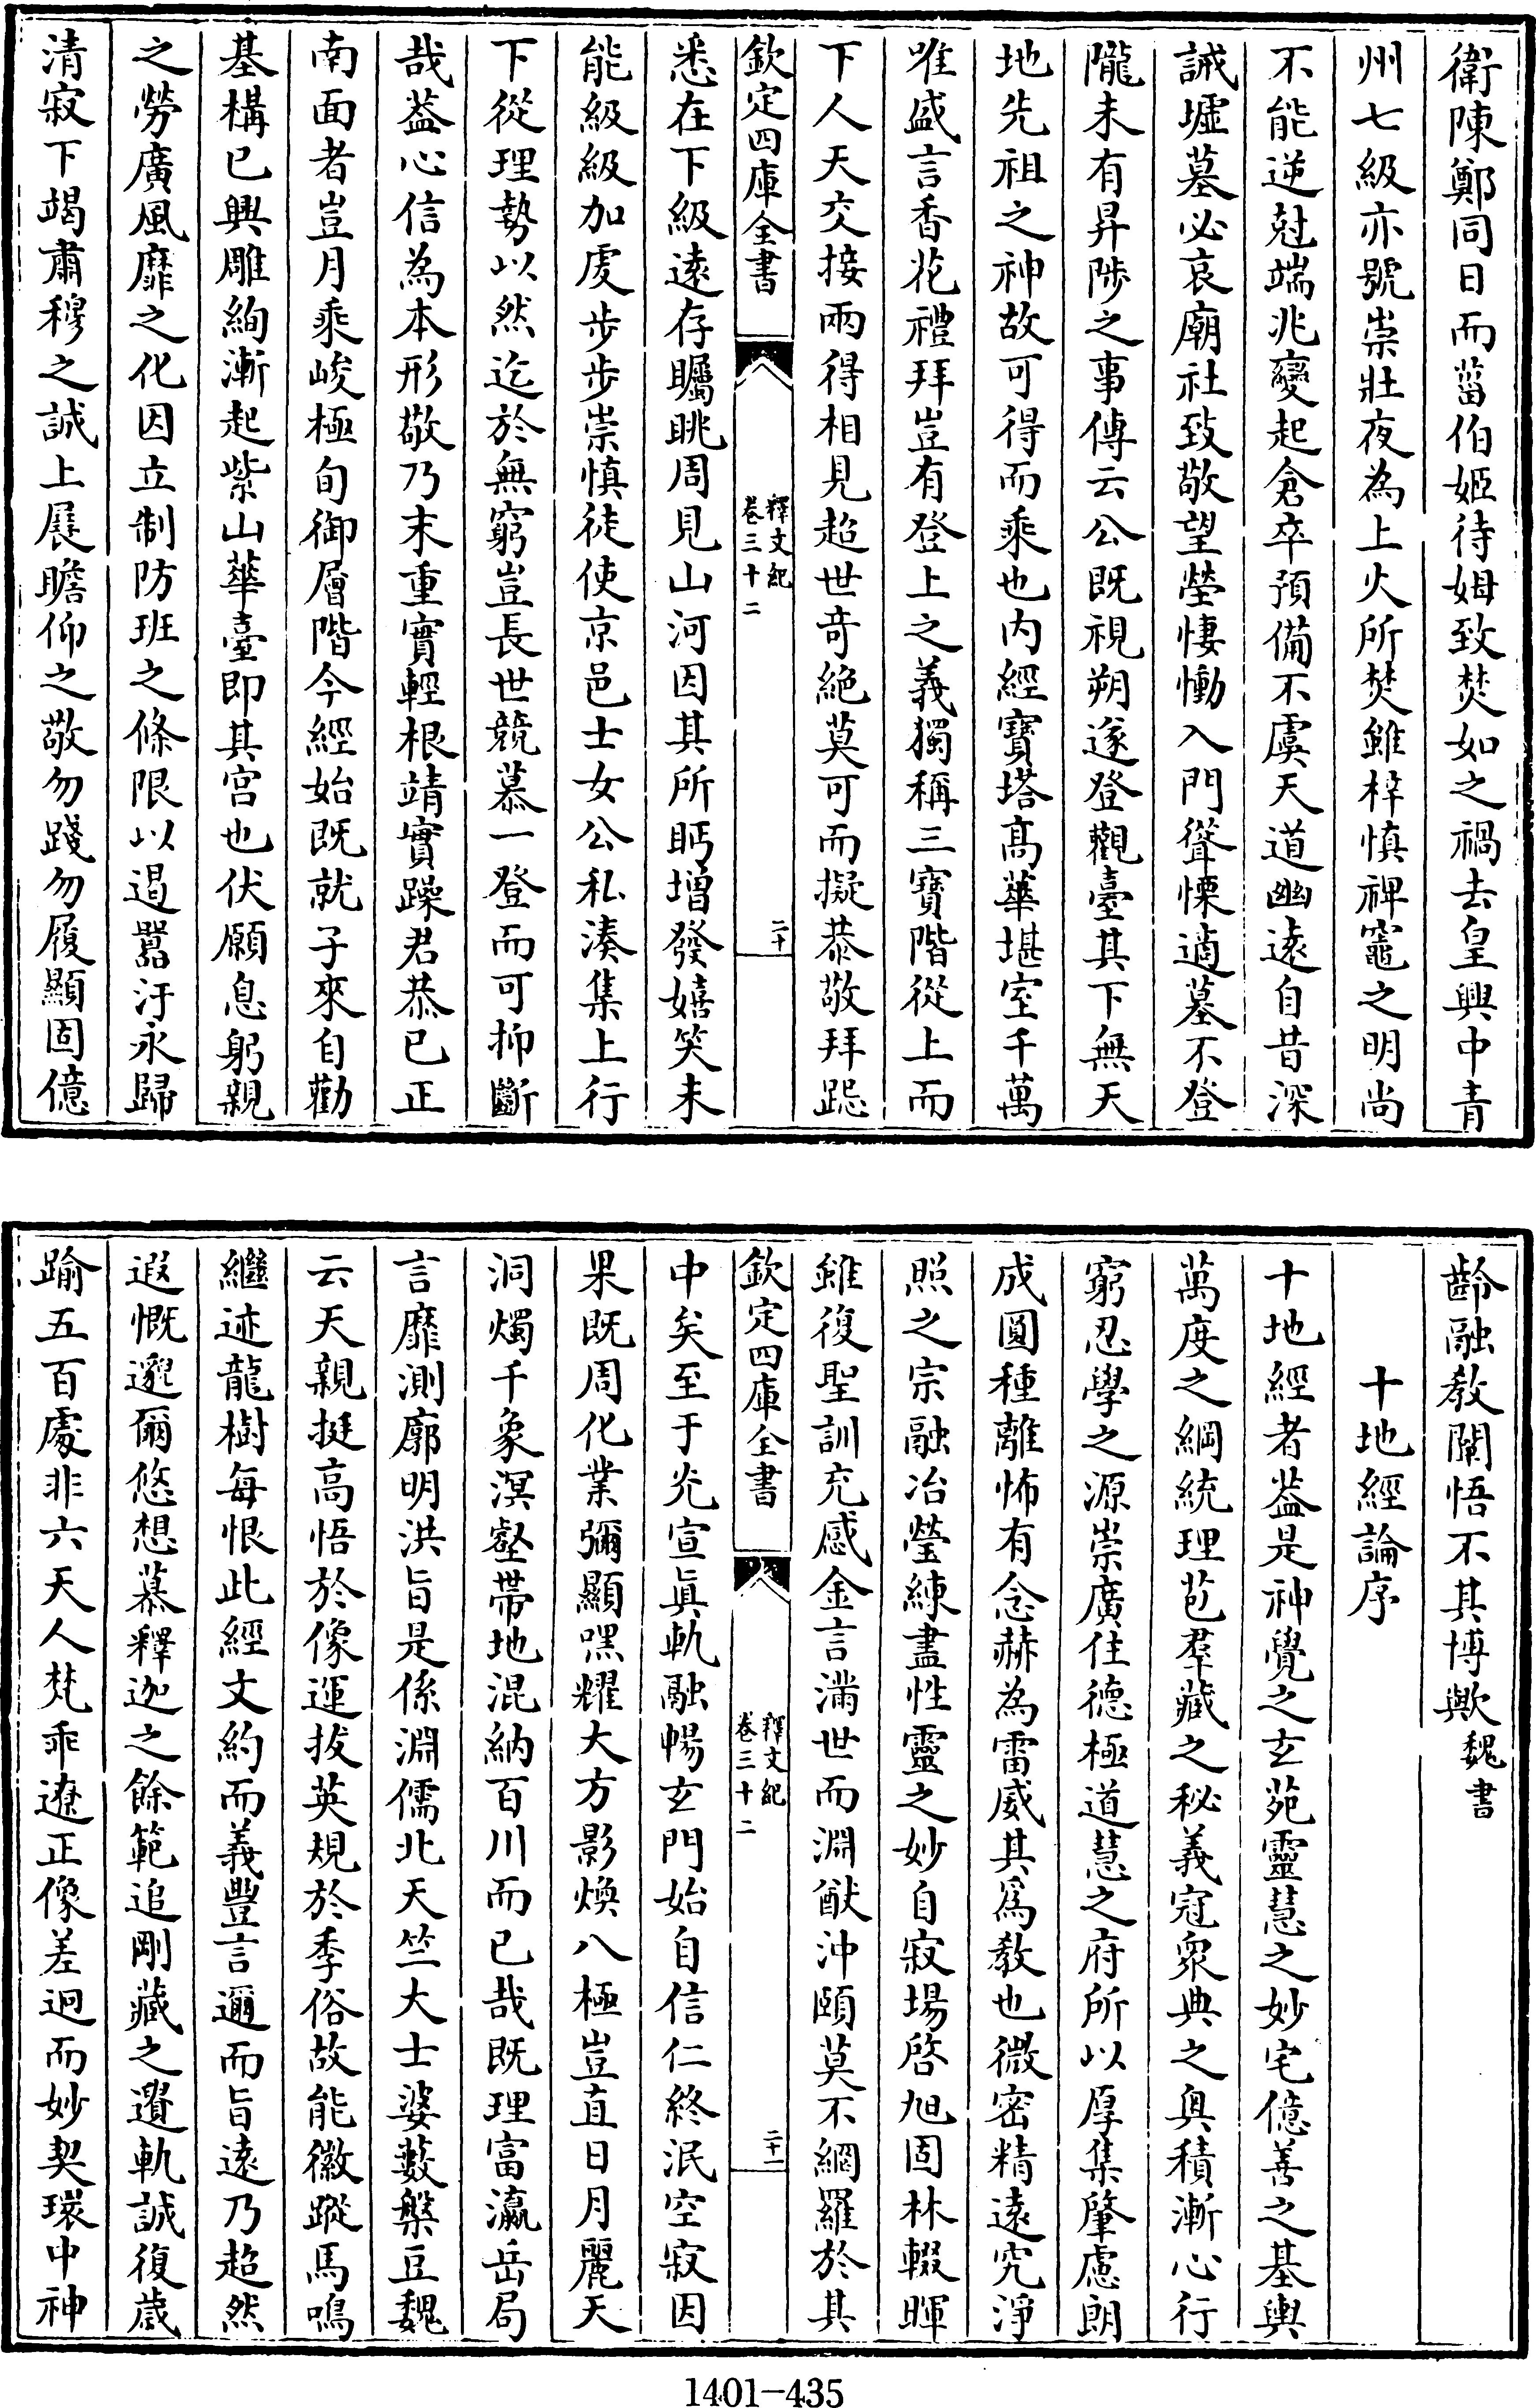 衛陳鄭同日而菑伯姬待姆致焚如之禍去皇興中青
州七級亦號崇壯夜為上火所焚雖梓慎裨竈之明尚
不能逆尅端兆變起倉卒預備不虞天道幽遠自昔深
誡墟墓必哀廟社致敬望塋悽慟入門聳慄適墓不登
隴未有昇陟之事傳云公既視朔遂登觀臺其下無天
地先祖之神故可得而乘也内經寶塔髙華堪室千萬
唯盛言香花禮拜豈有登上之義獨稱三寳階從上而
下人天交接兩得相見超世竒絶莫可而擬恭敬拜跽
欽定四庫全書
釋文紀
卷三十二
二十
悉在下級逺存矚眺周見山河因其所眄增發嬉笑未
能級級加虔步步崇慎徒使京邑士女公私湊集上行
下從理勢以然迄於無窮豈長世競慕一登而可抑斷
哉葢心信為本形敬乃末重實輕根靖實躁君恭已正
南面者豈月乘峻極旬御層階今經始既就子來自勸
基構已興雕絢漸起紫山華臺即其宫也伏願息躬親
之勞廣風靡之化因立制防班之條限以遏囂汙永歸
清寂下竭肅穆之誠上展瞻仰之敬勿踐勿履顯固億
齡融教闡悟不其博歟魏書
十地經論序
十地經者葢是神覺之玄苑靈慧之妙宅億善之基輿
萬度之綱統理苞羣藏之秘義冠衆典之奥積漸心行
窮忍學之源崇廣住德極道慧之府所以厚集肇慮朗
成圓種離怖有念赫為雷威其爲教也微密精逺究淨
照之宗融冶瑩練盡性靈之妙自寂場啓旭固林輟暉
雖復聖訓充感金言滿世而淵猷沖頤莫不網羅於其
欽定四庫全書
釋文紀
卷三十二
二十一
中矣至于光宣真軌融暢玄門始自信仁終泯空寂因
果既周化業彌顯嘿耀大方影煥八極豈直日月麗天
洞燭千象溟壑帶地混納百川而已哉既理富瀛岳局
言靡測廓明洪旨是係淵儒北天竺大士婆藪槃豆魏
云天親挺高悟於像運拔英規於季俗故能徽蹤馬鳴
繼迹龍樹每恨此經文約而義豐言邇而旨逺乃超然
遐慨邈爾悠想慕釋迦之餘範追剛藏之遺軌誠復歲
踰五百處非六天人梵乖遼正像差迥而妙契環中神
1401-435